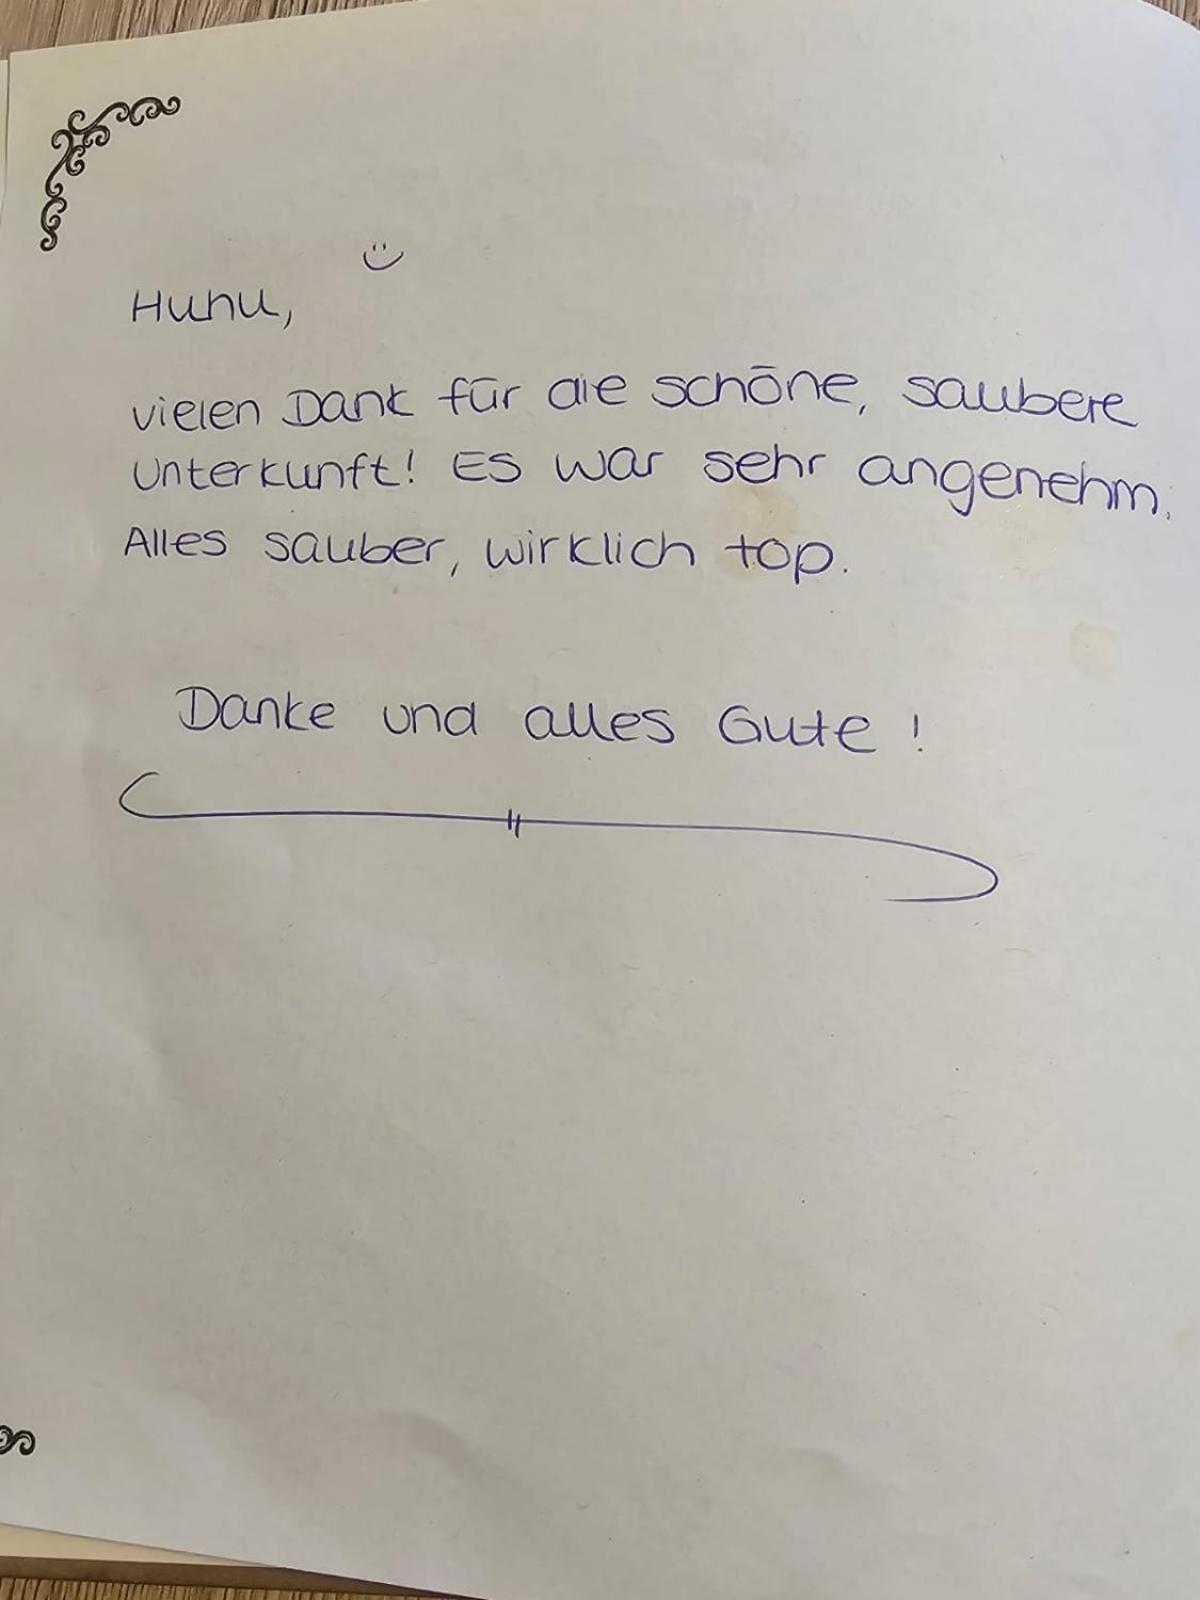 Huhu,
vielen Dank für die schöne, saubere
Unterkunft! Es war sehr angenehm.
Alles sauber, wirklich top.
Danke und alles Gute!